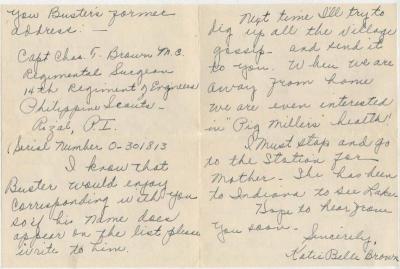 you Buster's former
address: —
Capt Chas. T. Brown M.C.
Regimental Surgeon
14th Regiment of Engineers
Philippine Scouts —
Rizal, P.I.
(Serial Number O-301813
I know that
Buster would enjoy
corresponding with you
so if his name does
appear on the list please
write to him.
Next time I'll try to
dig up all the village
gossip - and send it
to you. When we are
away from home
we are even interested
in "Pig Millers' health"!
I must stop and go
to the Station for
Mother - She has been
to Indiana to see
Hope to hear from
you soon.
Sincerely,
Katie Belle Brown